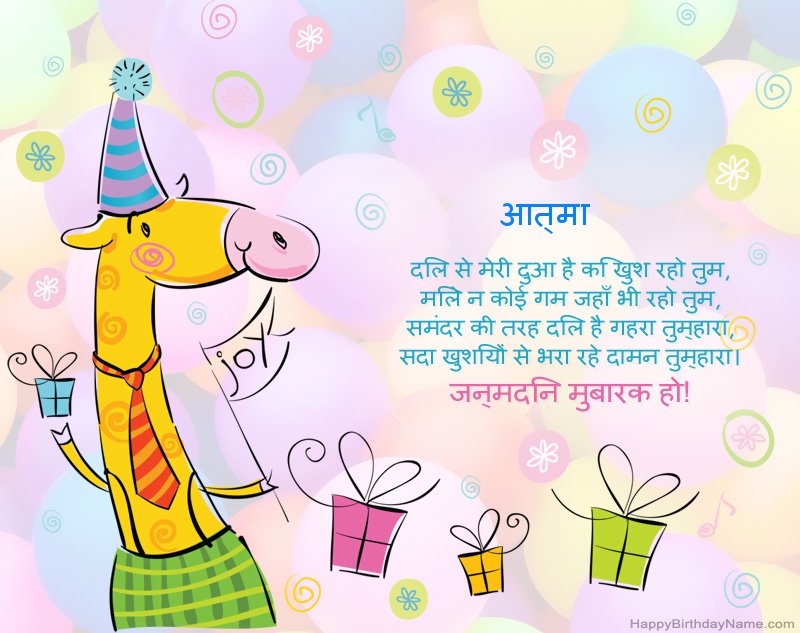 आत्मा
दिल से मेरी दुआ है कि खुश रहो तुम,
मिले न कोई गम जहाँ भी रहो तुम,
समंदर की तरह दिल है गहरा तुम्हारा,
सदा खुशियों से भरा रहे दामन तुम्हारा।
जन्मदिन मुबारक हो!
joy
HappyBirthdayName.com